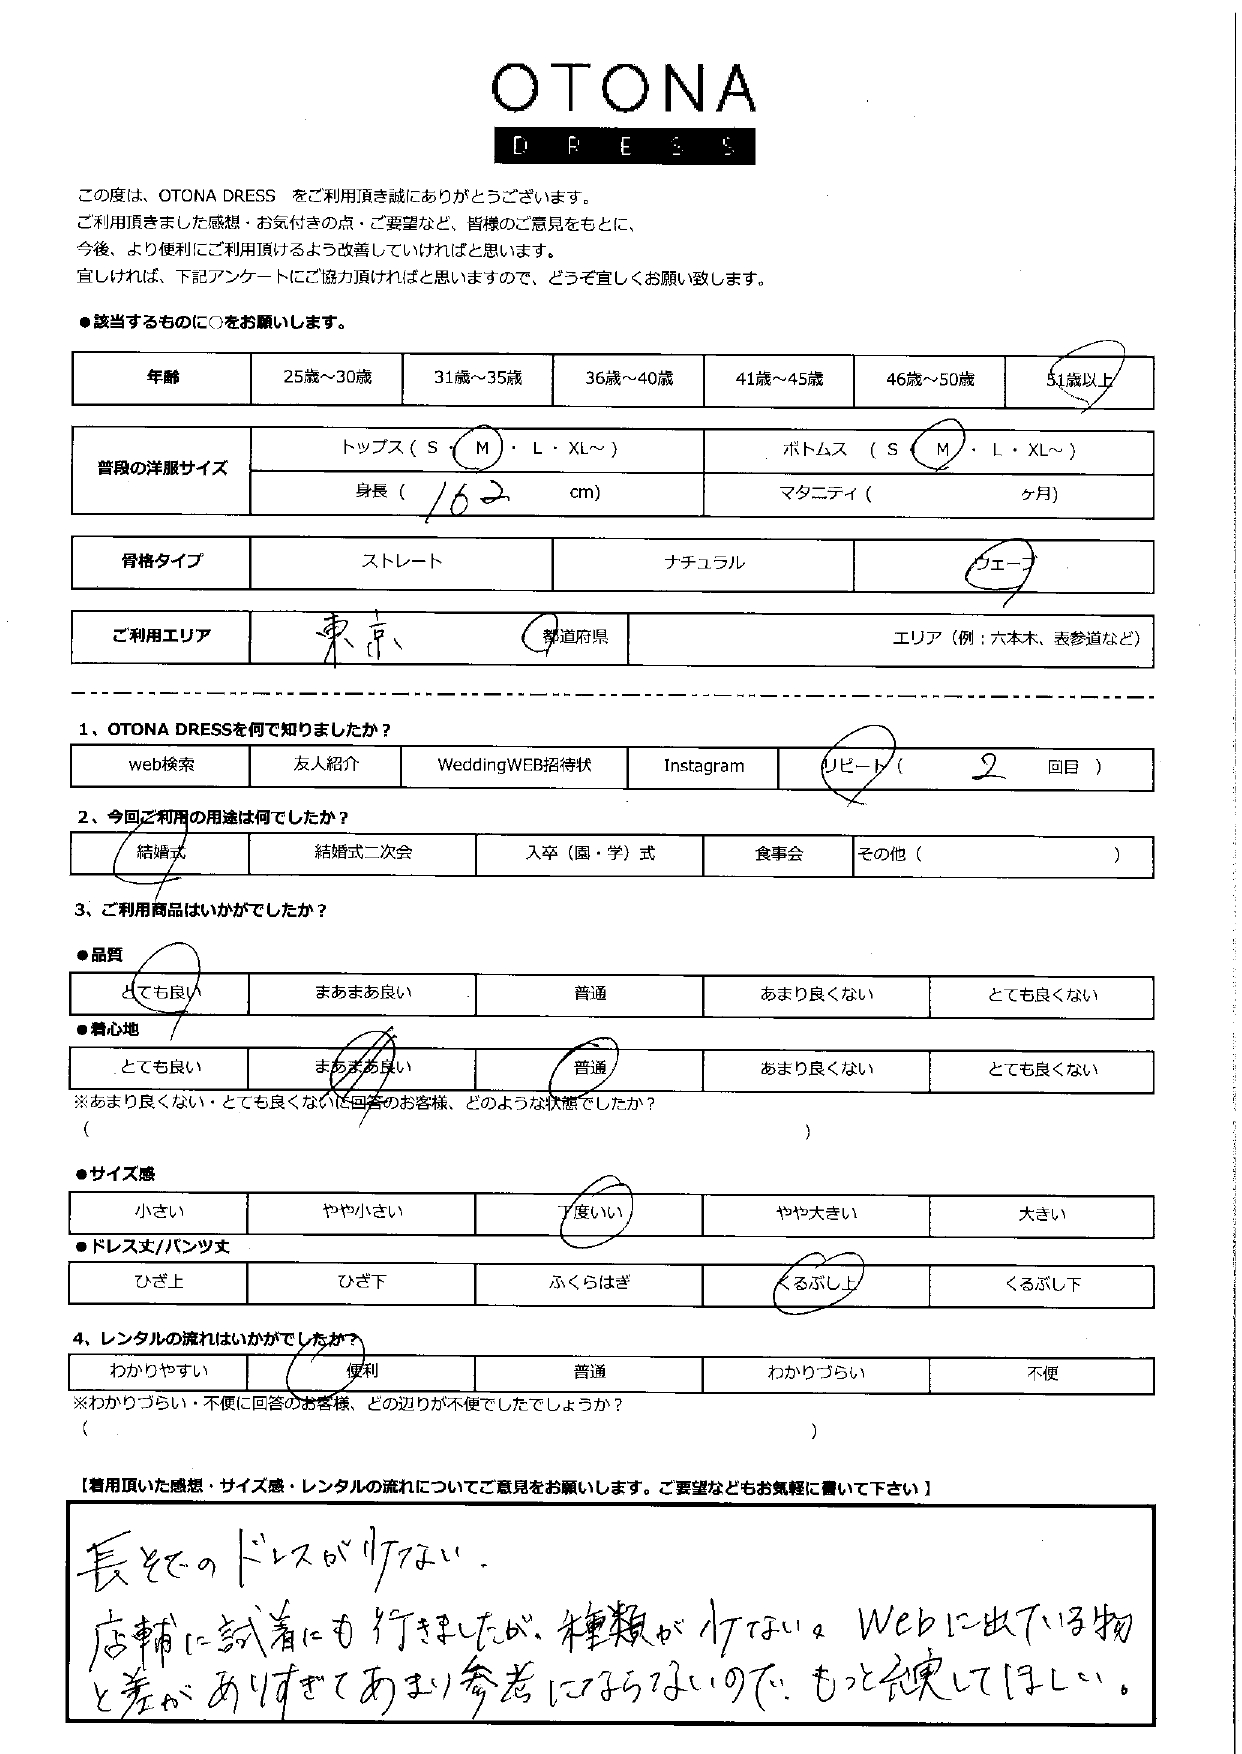 OTONA
DRESS
この度は、OTONA DRESS をご利用頂き誠にありがとうございます。
ご利用頂きました感想・お気付きの点・ご要望など、皆様のご意見をもとに、
今後、より便利にご利用頂けるよう改善していければと思います。
宜しければ、下記アンケートにご協力頂ければと思いますので、どうぞ宜しくお願い致します。
●該当するものに○をお願いします。
年齢 25歳～30歳 31歳～35歳 36歳～40歳 41歳～45歳 46歳～50歳 51歳以上
普段の洋服サイズ トップス ( S ・ M ・ L ・ XL～ ) ボトムス ( S ・ M ・ L ・ XL～ )
身長 ( 162 cm) マタニティ ( ヶ月)
骨格タイプ ストレート ナチュラル ウェーブ
ご利用エリア 東京 都道府県 エリア（例；六本木、表参道など）
1、OTONA DRESSを何で知りましたか？
web検索 友人紹介 WeddingWEB招待状 Instagram リピート ( 2 回目 )
2、今回ご利用の用途は何でしたか？
結婚式 結婚式二次会 入卒（園・学）式 食事会 その他 ( )
3、ご利用商品はいかがでしたか？
●品質
とても良い まあまあ良い 普通 あまり良くない とても良くない
●着心地
とても良い まあまあ良い 普通 あまり良くない とても良くない
※あまり良くない・とても良くないに回答のお客様、どのような状態でしたか？
( )
●サイズ感
小さい やや小さい 丁度いい やや大きい 大きい
●ドレス丈/パンツ丈
ひざ上 ひざ下 ふくらはぎ くるぶし上 くるぶし下
4、レンタルの流れはいかがでしたか？
わかりやすい 便利 普通 わかりづらい 不便
※わかりづらい・不便に回答のお客様、どの辺りが不便でしたでしょうか？
( )
【着用頂いた感想・サイズ感・レンタルの流れについてご意見をお願いします。ご要望などもお気軽に書いて下さい】
長そでのドレスが少ない.
店舗に試着にも行きましたが、種類が少ない。Webに出ている物
と差がありすぎてあまり参考にならないので、もっと充実してほしい。